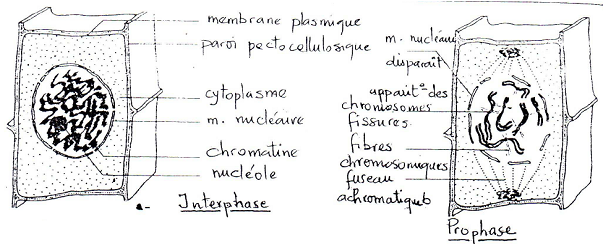 membrane plasmique
paroi pectocellulosique
cytoplasme
m. nucléaire
chromatine
nucléole
a- Interphase
m. nucléaire
disparaît
appait° des
chromosomes
fissurés.
fibres
chromosomiques
fuseau
achromatique b
Prophase